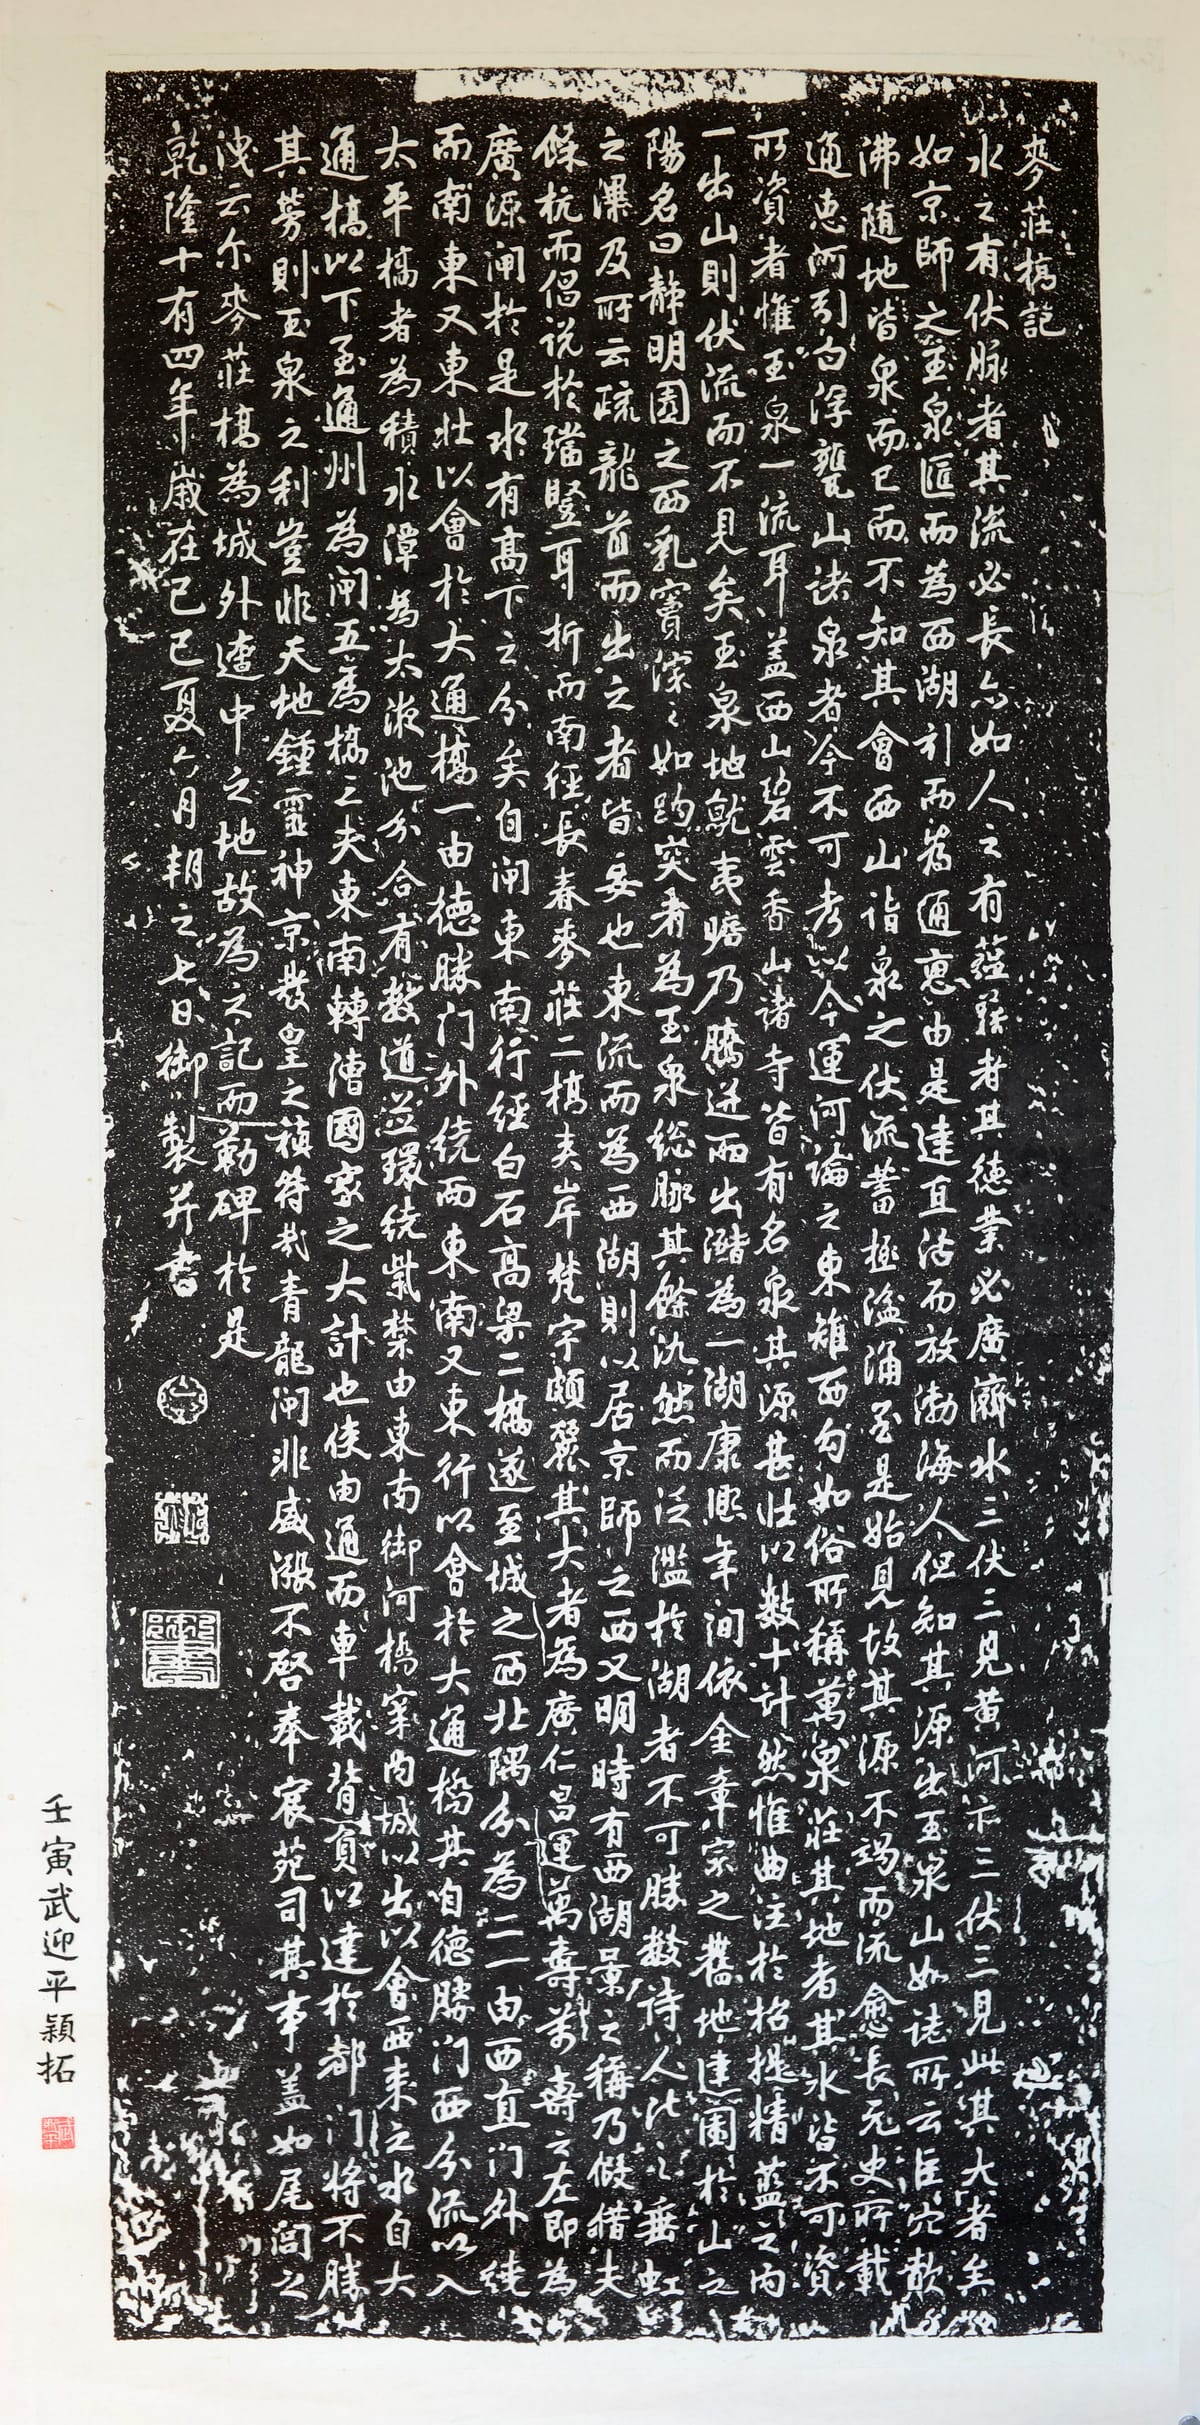 麥莊橋記
水之有伏脉者其流必長亦如人之有蘊藉者其德業必廣濟水三伏三見黄河亦三伏三見此其大者矣
如京師之玉泉匯而為西湖引而為通惠由是達直沽而放渤海人但知其源出玉泉山如志所云巨穴歕
沸随地皆泉而已而不知其會西山諸泉之伏流蓄極湓涌至是始見故其源不竭而流愈長元史所載
通惠河引白浮甕山诸泉者今不可考以今運河論之東雉西勾如俗所稱萬泉莊其地者其水皆不可資
所資者惟玉泉一流耳盖西山碧雲香山諸寺皆有名泉其源甚壮以數十計然惟曲注於招提精藍之内
一出山則伏流而不見矣玉泉地就夷曠乃騰迸而出瀦為一湖康熙年间依金章宗之舊地建園於山之
陽名曰静明園之西乳竇深〻如趵突者為玉泉総脈其餘氿然而泛濫於湖者不可勝数诗人比之垂虹
之瀑及所云疏龍首而出之者皆妄也東流而為西湖則以居京師之西又明時有西湖景之稱乃假借夫
餘杭而倡说於璫豎耳折而南經長春麥莊二橋夹岸梵宇頗麗其大者為廣仁昌運萬壽萬壽之左即為
廣源闸於是水有髙下之分矣自闸東南行经白石高梁二橋遂至城之西北隅分為二一由西直门外绕
而南東又東壮以會於大通橋一由德勝门外绕而東南又東行以會於大通橋其自德勝门西分流以入
太平橋者為積水潭為太液池分合有數道並環绕紫禁由東南御河橋穿内城以出以會西来之水自大
通橋以下至通州為闸五為橋二夫東南轉漕國家之大計也使由通而車載背負以達於都门将不勝
其勞則玉泉之利豈非天地鍾靈神京發皇之禎符哉青龍闸非盛漲不啓奉宸苑司其事盖如尾闾之
洩云尔麥莊橋為城外適中之地故為之記而勒碑於是
乾隆十有四年歲在己巳夏六月朔之七日御製并書
壬寅武迎平穎拓